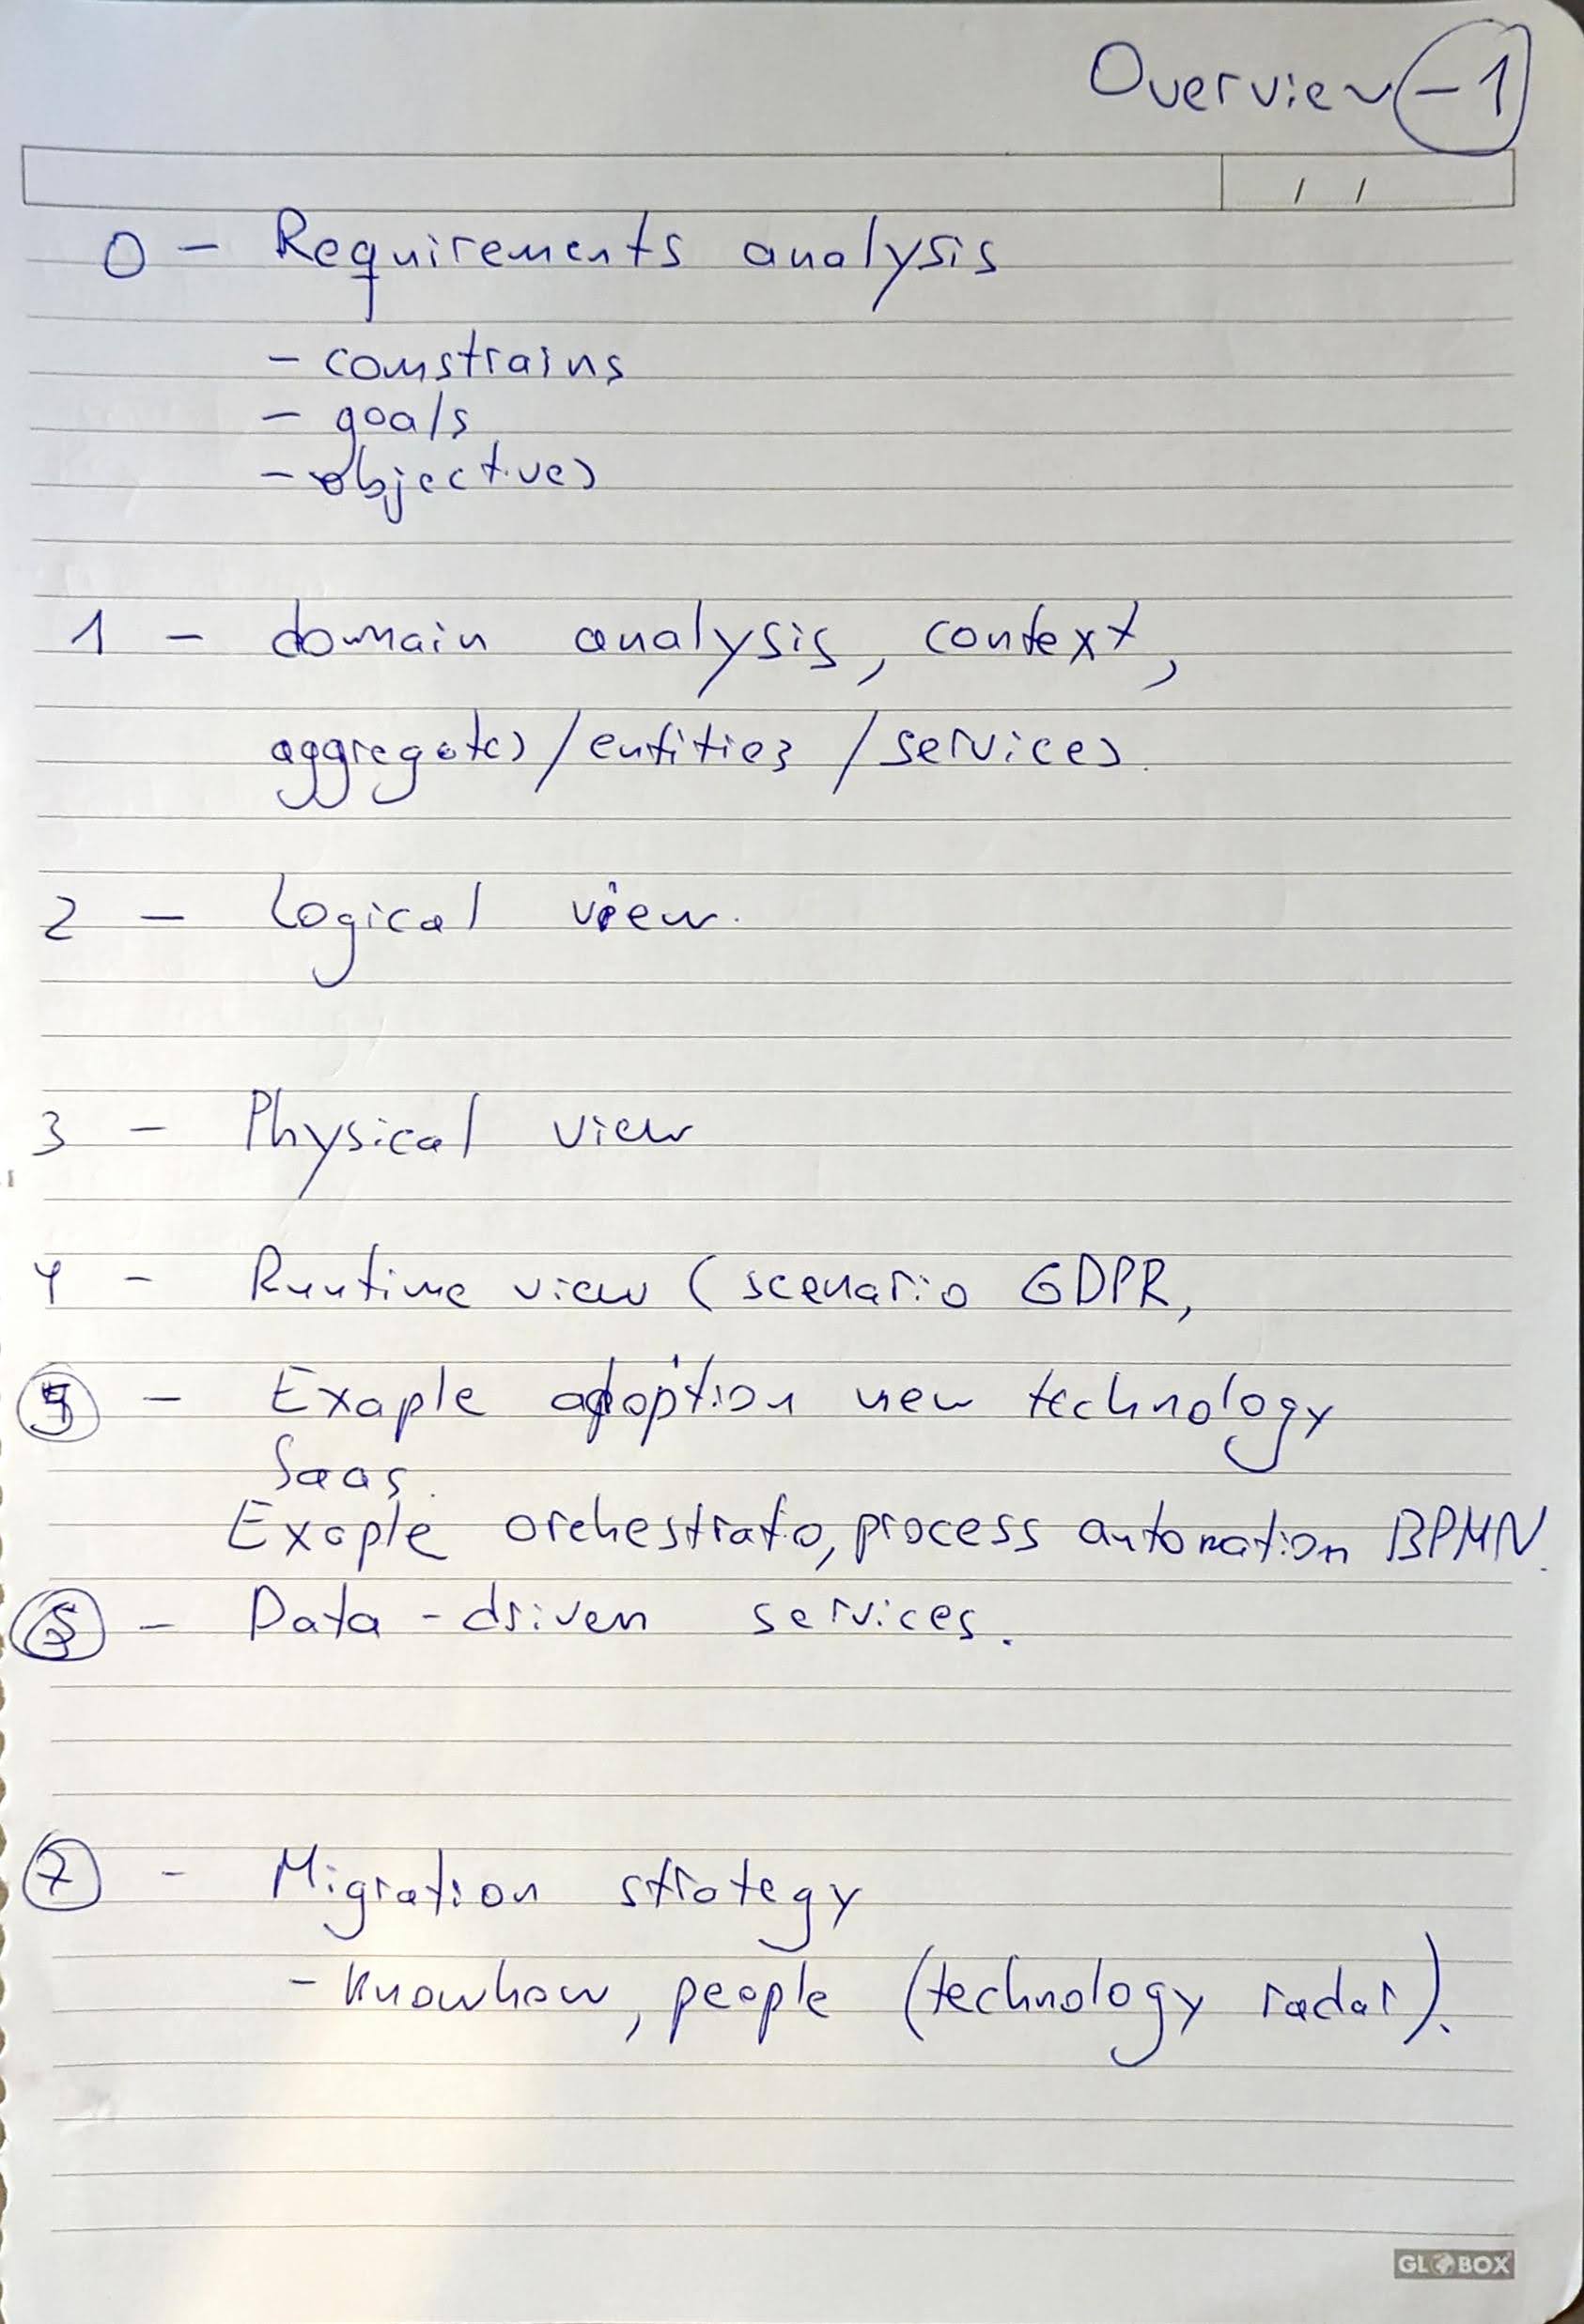 Overview -1
/ /
0 - Requirements analysis
- constrains
- goals
- objectives
1 - domain analysis, context,
aggregates/entities/services.
2 - Logical view.
3 - Physical view
4 - Runtime view (scenario GDPR,
5 - Exaple adoption new technology
Saas.
Exaple orchestratio, process automation BPMN.
- Data-driven services.
7 - Migration strategy
- Knowhow, people (technology radar).
GLOBOX